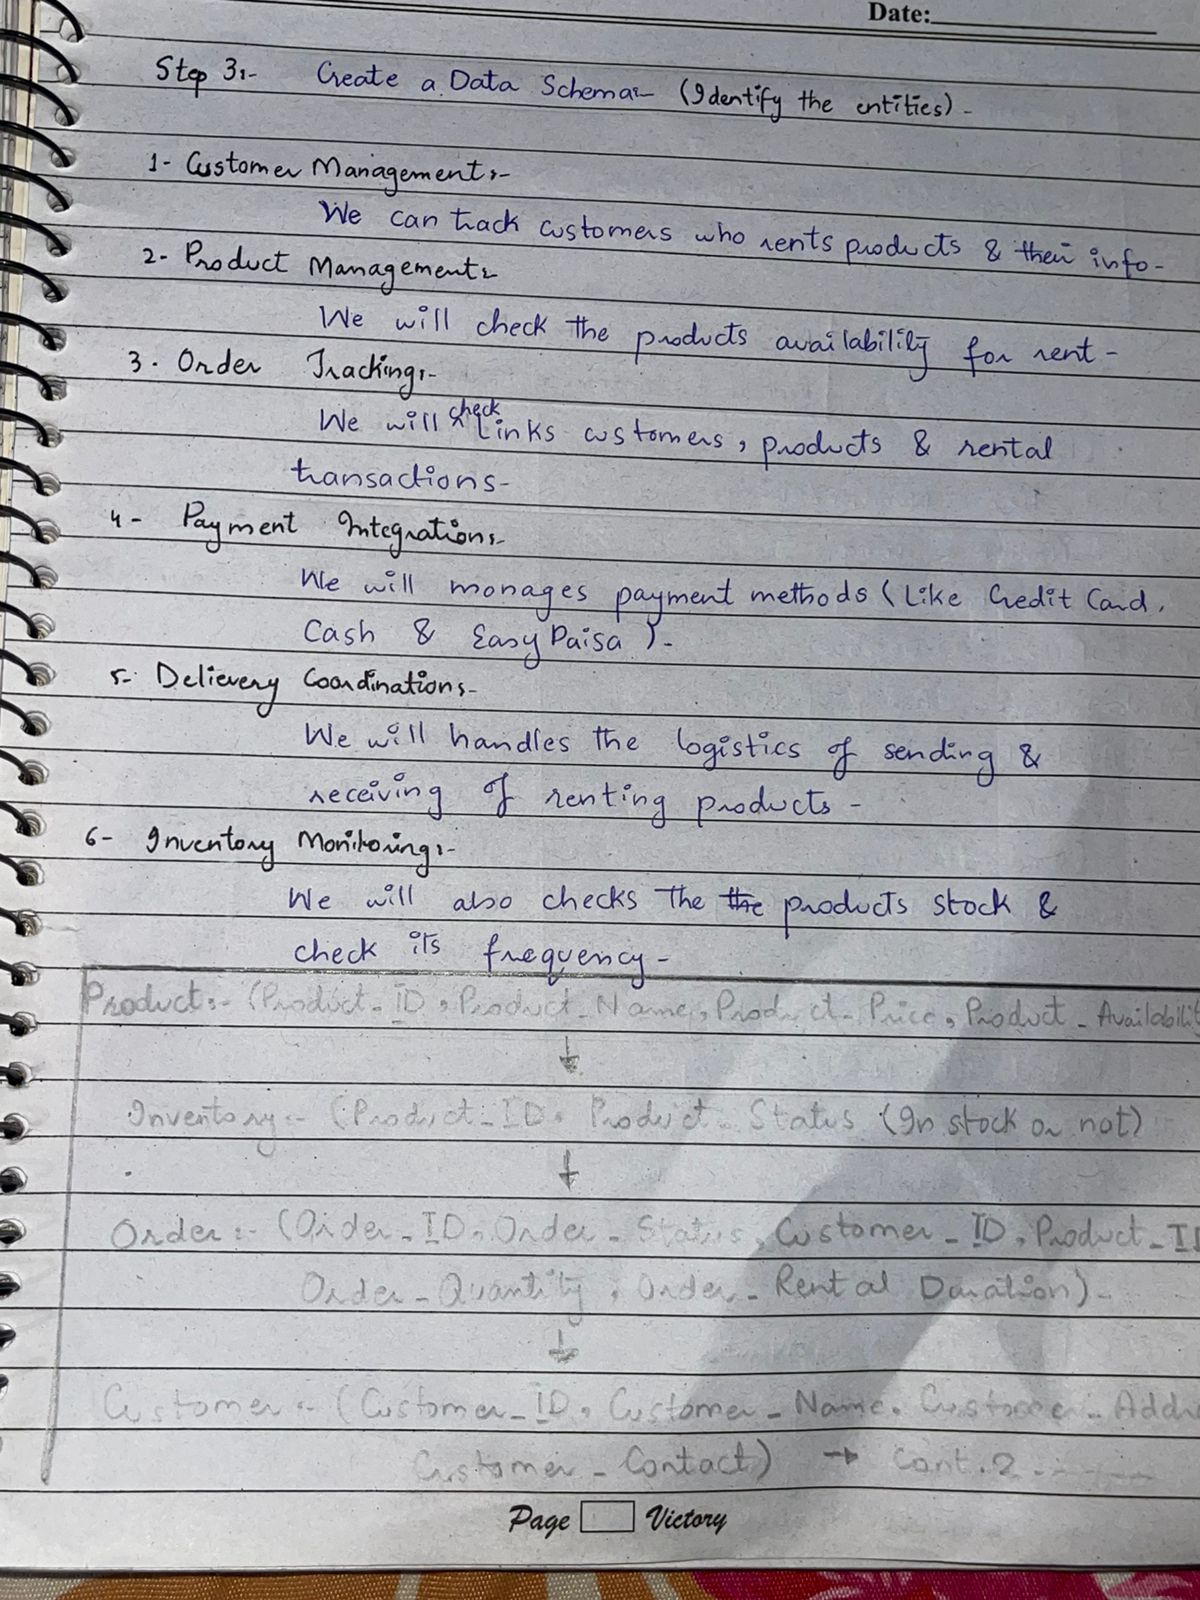 Date:
Step 3:- Create a Data Schema:- (Identify the entities)-
1- Customer Management:-
We can track customers who rents products & their info-
2- Product Management:
We will check the products availability for rent-
3. Order Tracking:-
We will check Links customers, products & rental
transactions-
4- Payment Integration:-
We will manages payment methods (Like Credit Card,
Cash & EasyPaisa)-
5- Delievery Coordination:-
We will handles the logistics of sending &
receiving of renting products-
6- Inventory Monitoring:-
We will also checks the the products stock &
check its frequency-
Product:- (Product_ID, Product_Name, Product_Price, Product_Availabilit
↓
Inventory:- (Product_ID, Product_Status (In stock or not)
↓
Order:- (Order_ID, Order_Status, Customer_ID, Product_ID
Order_Quantity, Order_Rental Duration)-
↓
Customer:- (Customer_ID, Customer_Name, Customer_Addr
Customer_Contact) → Cont.2------
Page Victory